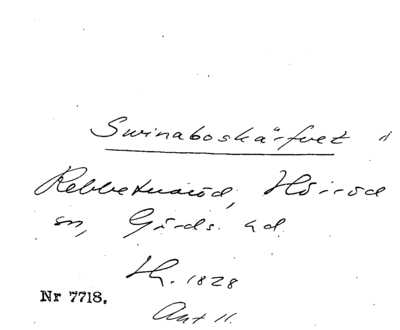 Svinaboskärfvet "
Rebbetuaröd, Höiröd
sn, Gärds hd.
Th. 1828
Nr 7718.
Ant 11.